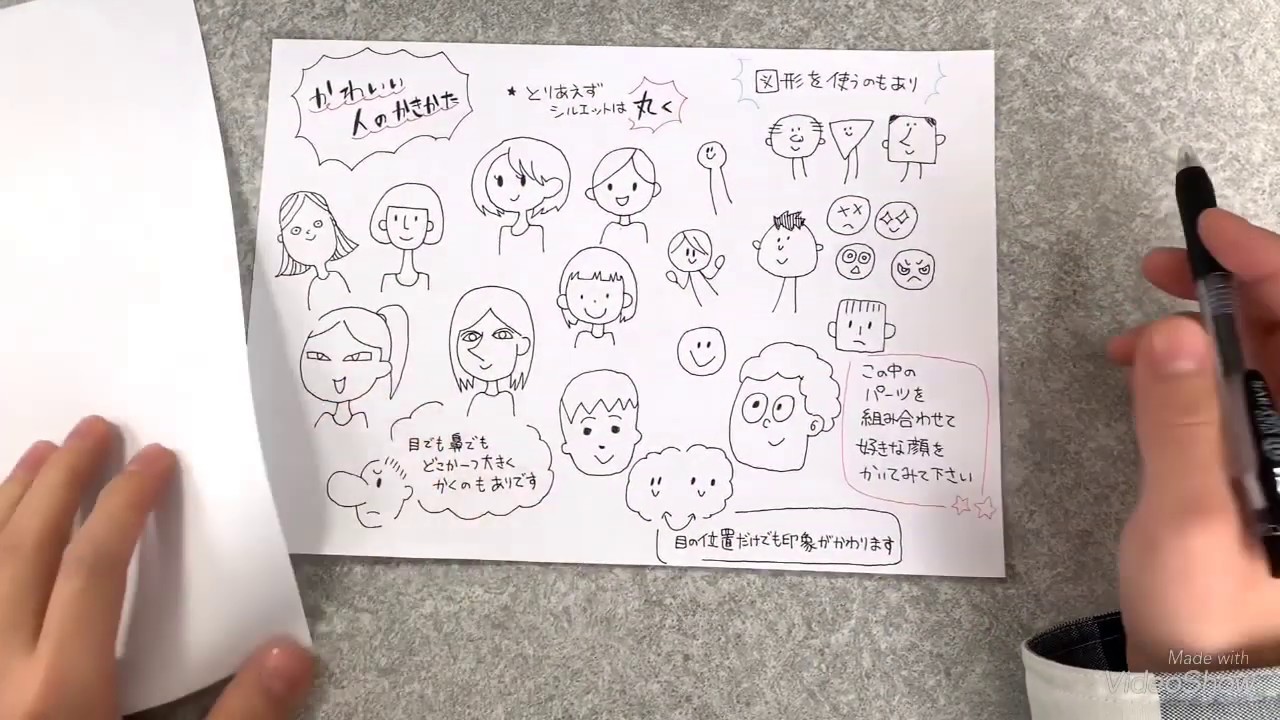 かわいい
人のかきかた
★とりあえず
シルエットは 丸く
図形を使うのもあり
この中の
パーツを
組み合わせて
好きな顔を
かいてみて下さい
目でも鼻でも
どこか一つ大きく
かくのもありです
目の位置だけでも印象がかわります
Made with
VideoShow